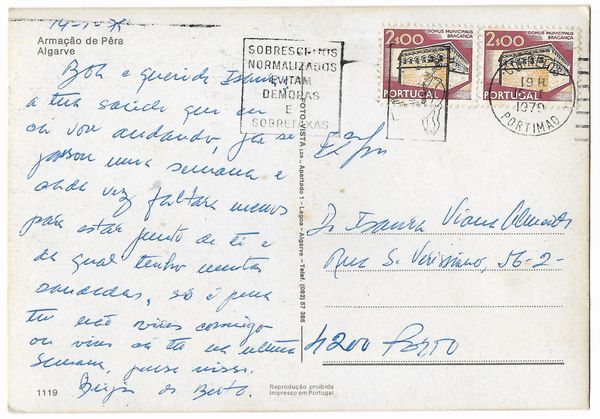 Armação de Pêra
Algarve
Boa e querida
a tua saúde que eu
cá vou andando, já se
passou uma semana e
cada vez faltam menos
para estar junto de ti e
da qual tenho muitas
saudades, só é pena
tu não vires comigo
ou vires cá ter na última
semana, pense nisso.
Beijos do Beto.
1119
Reprodução proibida
Impresso em Portugal
FOTO-VISTA LDA., Apartado 1 - Lagoa - Algarve - Telef. (082) 57 365
SOBRESCRITOS
NORMALIZADOS
EVITAM
DEMORAS
E
SOBRETAXAS
2$00
DOMUS MUNICIPALIS
BRAGANÇA
PORTUGAL
2$00
DOMUS MUNICIPALIS
BRAGANÇA
PORTUGAL
19 H
1979
PORTIMAO
D. Isaura Viana
Rua S. Veríssimo, 56-2-
4200 Porto